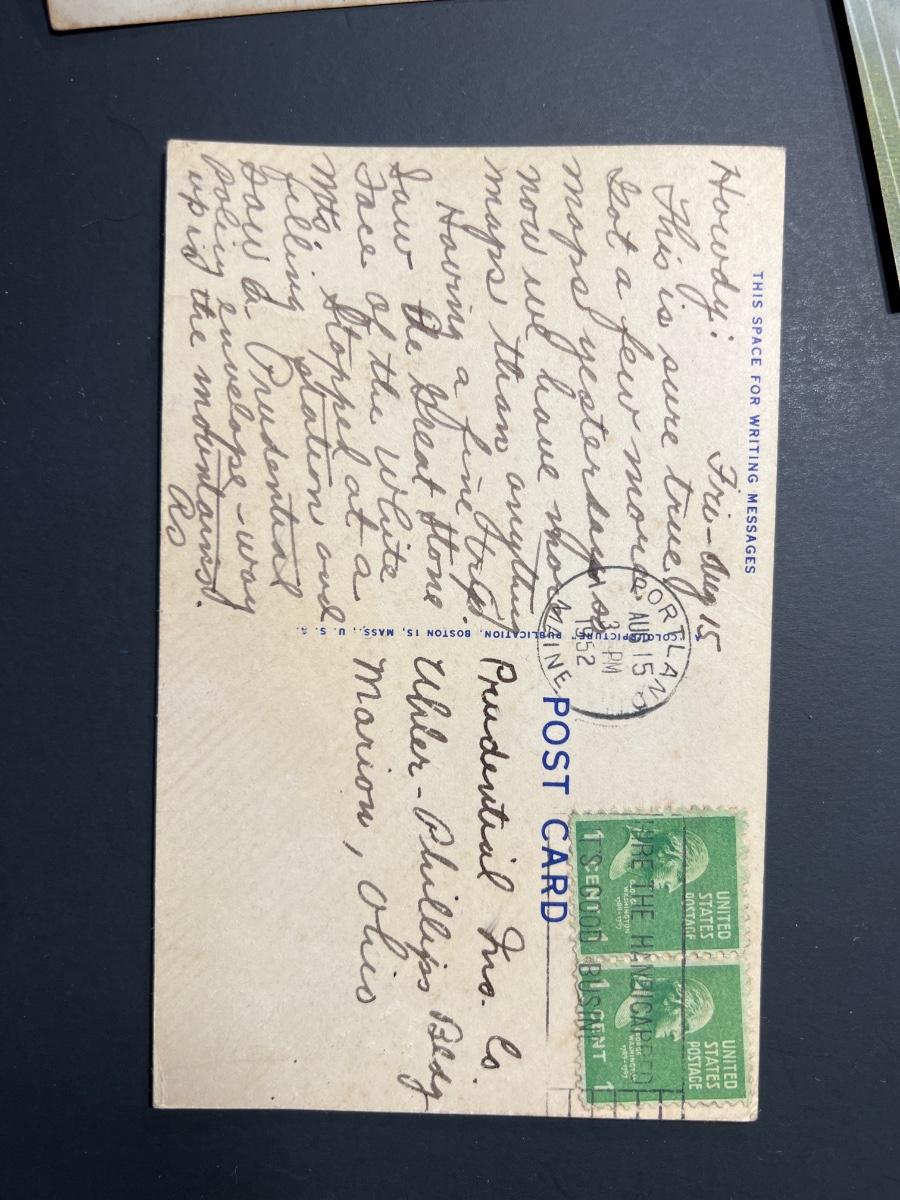 THIS SPACE FOR WRITING MESSAGES
Fri - Aug 15
Howdy:
This is sure true,
Got a few more
maps yesterday so
now we have more
maps than anything
Having a fine trip.
Saw the Great Stone
Face of the White
Mts. Stopped at a
filling station and
saw a Prudential
policy envelope - way
up in the mountains.
Ro
"COLOURPICTURE" PUBLICATION, BOSTON 15, MASS., U. S. A.
PORTLAND
AUG 15
3 PM
1952
MAINE
POST CARD
Prudential Ins. Co.
Uhler-Phillips Bldg
Marion, Ohio
HIRE THE HANDICAPPED
IT'S GOOD BUSINESS
UNITED
STATES
POSTAGE
GEORGE
WASHINGTON
1 CENT 1
UNITED
STATES
POSTAGE
GEORGE
WASHINGTON
1 CENT 1